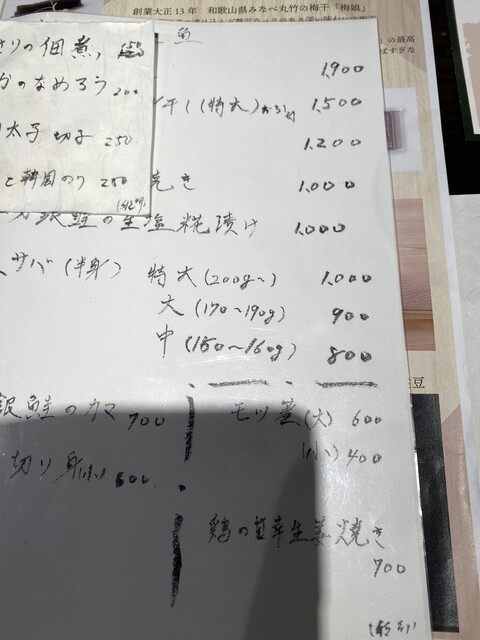 創業大正13年 和歌山県みなべ丸竹の梅干「梅娘」
さりの佃煮
かのなめろう 200
太子 切子 250
と韓国のり 250
魚
1,900
干し(特大) 1,500
1,200
焼き 1,000
銀鮭の 塩糀漬け 1,000
サバ(半身) 特大(200g〜) 1,000
大(170〜190g) 900
中(150〜160g) 800
銀鮭のカマ 700
切り身(小) 500
モツ煮(大) 600
(小) 400
鶏の 生姜焼き
700